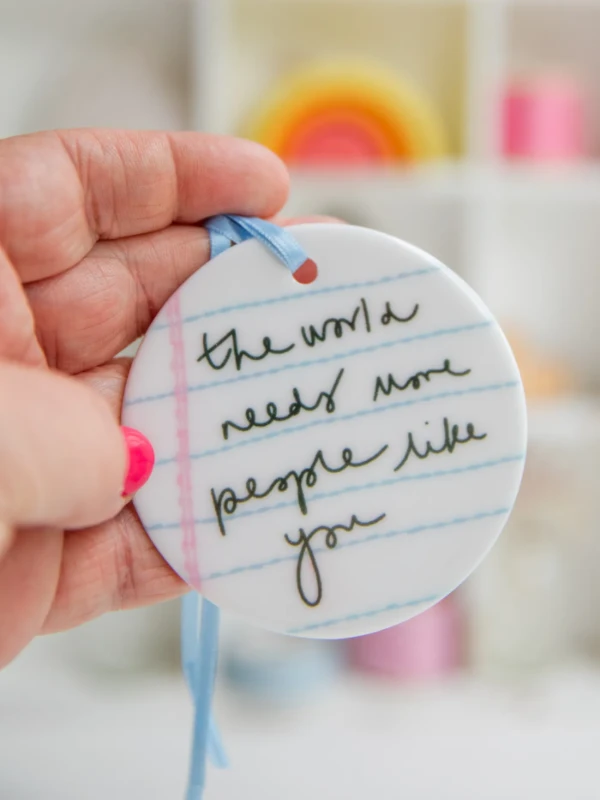 the world
needs more
people like
you